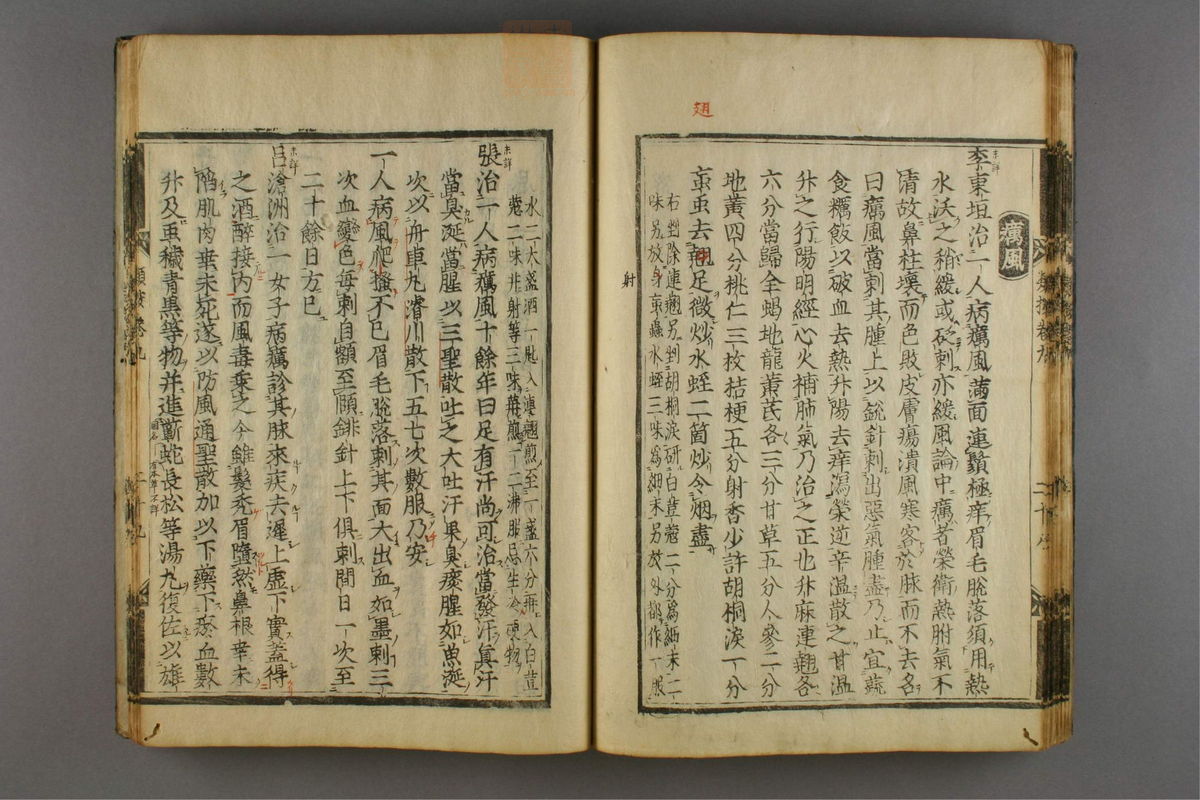 翅
癘風
李東垣治一人病癘風滿面連鬚極痒眉毛脫落須用熱
水沃之稍緩或砭刺亦緩風論中癘者榮衛熱胕氣不
清故鼻柱壞而色敗皮膚瘍潰風寒客於脉而不去名
曰癘風當刺其腫上以銳針刺出惡氣腫盡乃止宜蔬
食糲飯以破血去熱升陽去痒瀉榮逆辛溫散之甘溫
升之行陽明經心火補肺氣乃治之正也升麻連翹各
六分當歸全蝎地龍黃芪各三分甘草五分人參二分
地黃四分桃仁三枚桔梗五分射香少許胡桐淚一分
䖟虫去翅足微炒水蛭二箇炒令烟盡
右剉除連翹另剉胡桐淚研白荳蔻二分爲細末二
味另放身䖟蟲水蛭三味爲細末另放外都作一服
射
水二大盞酒一匙入連翹煎至一盞六分再入白荳
蔻二味并射等三味再煎一二沸服忌生冷硬物
未詳
張治一人病癘風十餘年曰足有汗尚可治當發汗眞汗
當臭涎當腥以三聖散吐之大吐汗果臭痰腥如魚涎
次以舟車丸濬川散下五七次數服乃安
一人病風爬搔不已眉毛脫落刺其面大出血如墨刺三
次血變色每刺自額至頤鋒針上下俱刺間日一次至
二十餘日方已
未詳
呂滄洲治一女子病癘診其脉來疾去遲上虛下實蓋得
之酒醉接內而風毒乘之今雖髮禿眉墮然鼻根幸未
陷肌肉幸未死遂以防風通聖散加以下藥下瘀血數
升及虫穢青黑等物并進蘄蛇長松等湯丸復佐以雄